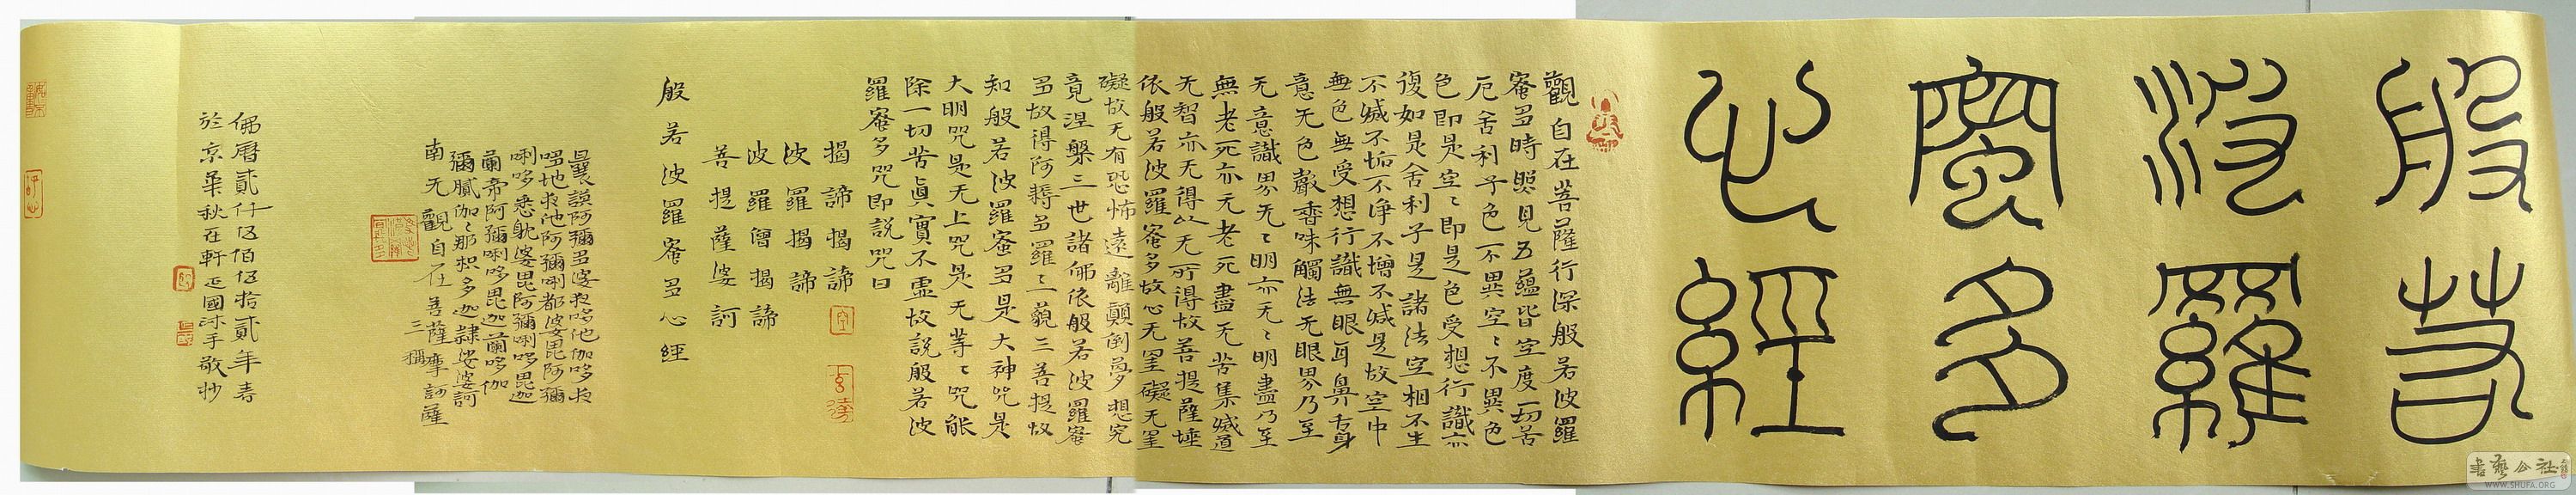 般若
波羅
蜜多
心經
觀自在菩薩行深般若波羅
蜜多時照見五蘊皆空度一切苦
厄舍利子色不異空〻不異色
色即是空〻即是色受想行識亦
復如是舍利子是諸法空相不生
不滅不垢不淨不增不減是故空中
無色無受想行識無眼耳鼻舌身
意无色聲香味觸法无眼界乃至
无意識界无〻明亦无〻明盡乃至
無老死亦无老死盡无苦集滅道
无智亦无得以无所得故菩提薩埵
依般若波羅蜜多故心无罣礙无罣
礙故无有恐怖遠離顛倒夢想究
竟涅槃三世諸佛依般若波羅蜜
多故得阿耨多羅〻三藐三菩提故
知般若波羅蜜多是大神咒是
大明咒是无上咒是无等〻咒能
除一切苦真實不虛故說般若波
羅蜜多咒即說咒曰
揭諦揭諦
波羅揭諦
波羅僧揭諦
菩提薩婆訶
般若波羅蜜多心經
曩謨阿彌多婆夜哆他伽哆夜
哆地夜他阿彌唎都婆毘阿彌
唎哆悉耽婆毘阿彌唎哆毘迦
蘭帝阿彌唎哆毘迦蘭哆伽
彌膩伽〻那枳多迦隸娑婆訶
南无觀自在菩薩摩訶薩
三稱
佛曆貳仟伍佰伍拾貳年春
於京華秋在軒正國沐手敬抄
書藝公社
WWW.SHUFA.ORG